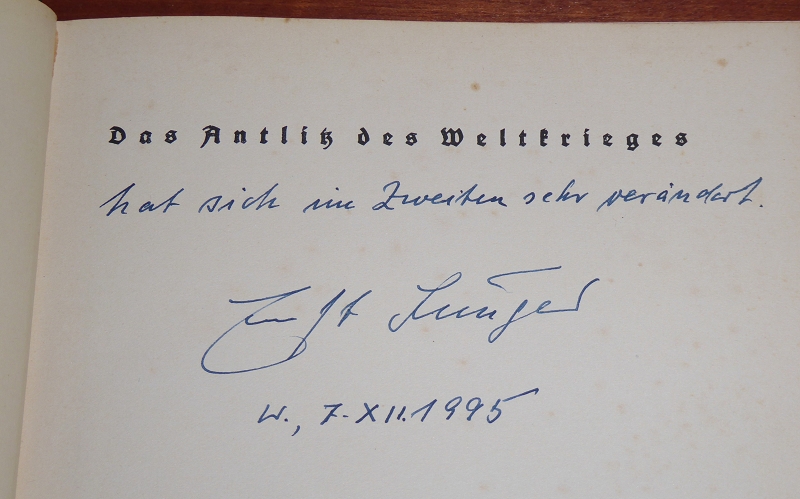 Das Antlitz des Weltkrieges
hat sich im Zweiten sehr verändert.
Ernst Jünger
W., 7.XII.1995